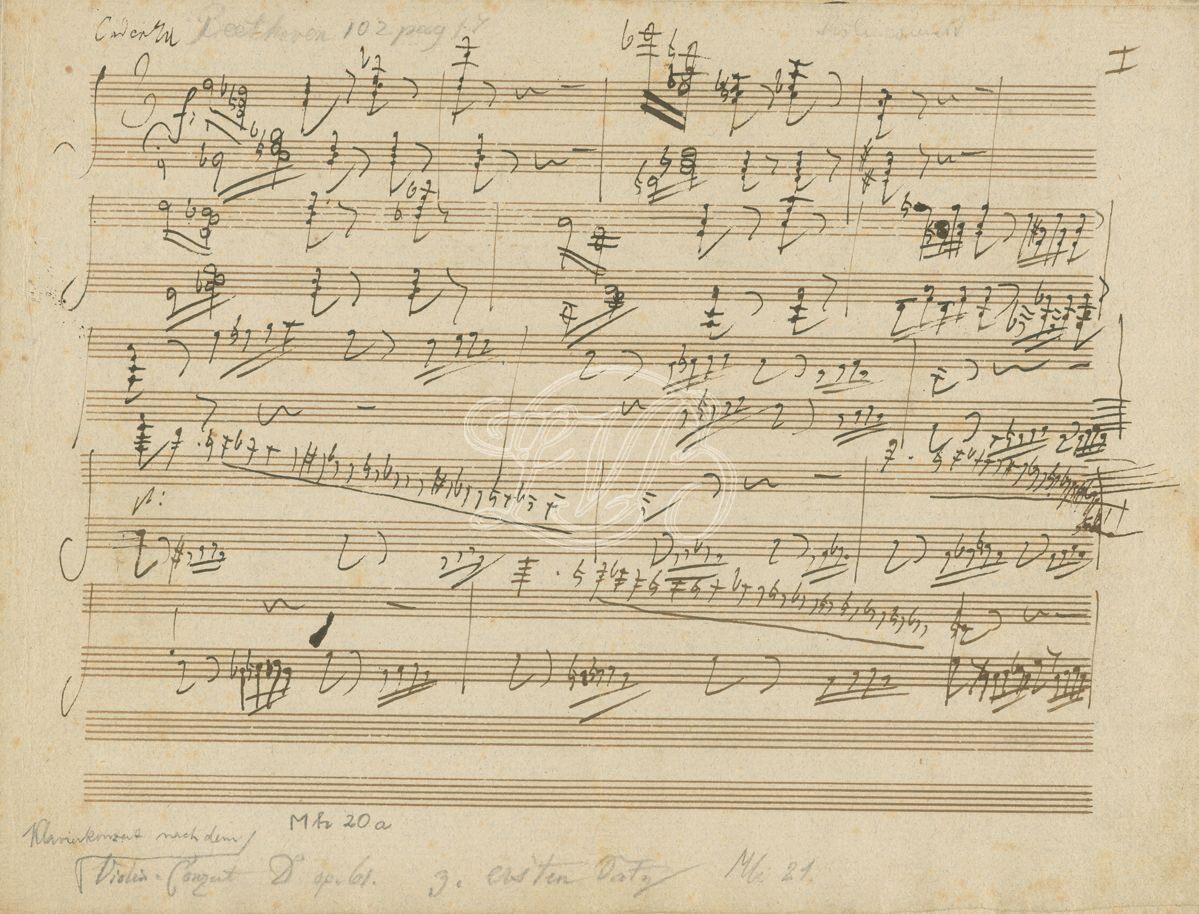 Cadenza Beethoven 102 pag 17
I
f:
p:
LVB
Mh 20a
Klavierkonzert nach dem
Violin-Conzert D op. 61. z. ersten Satz Mh. 21